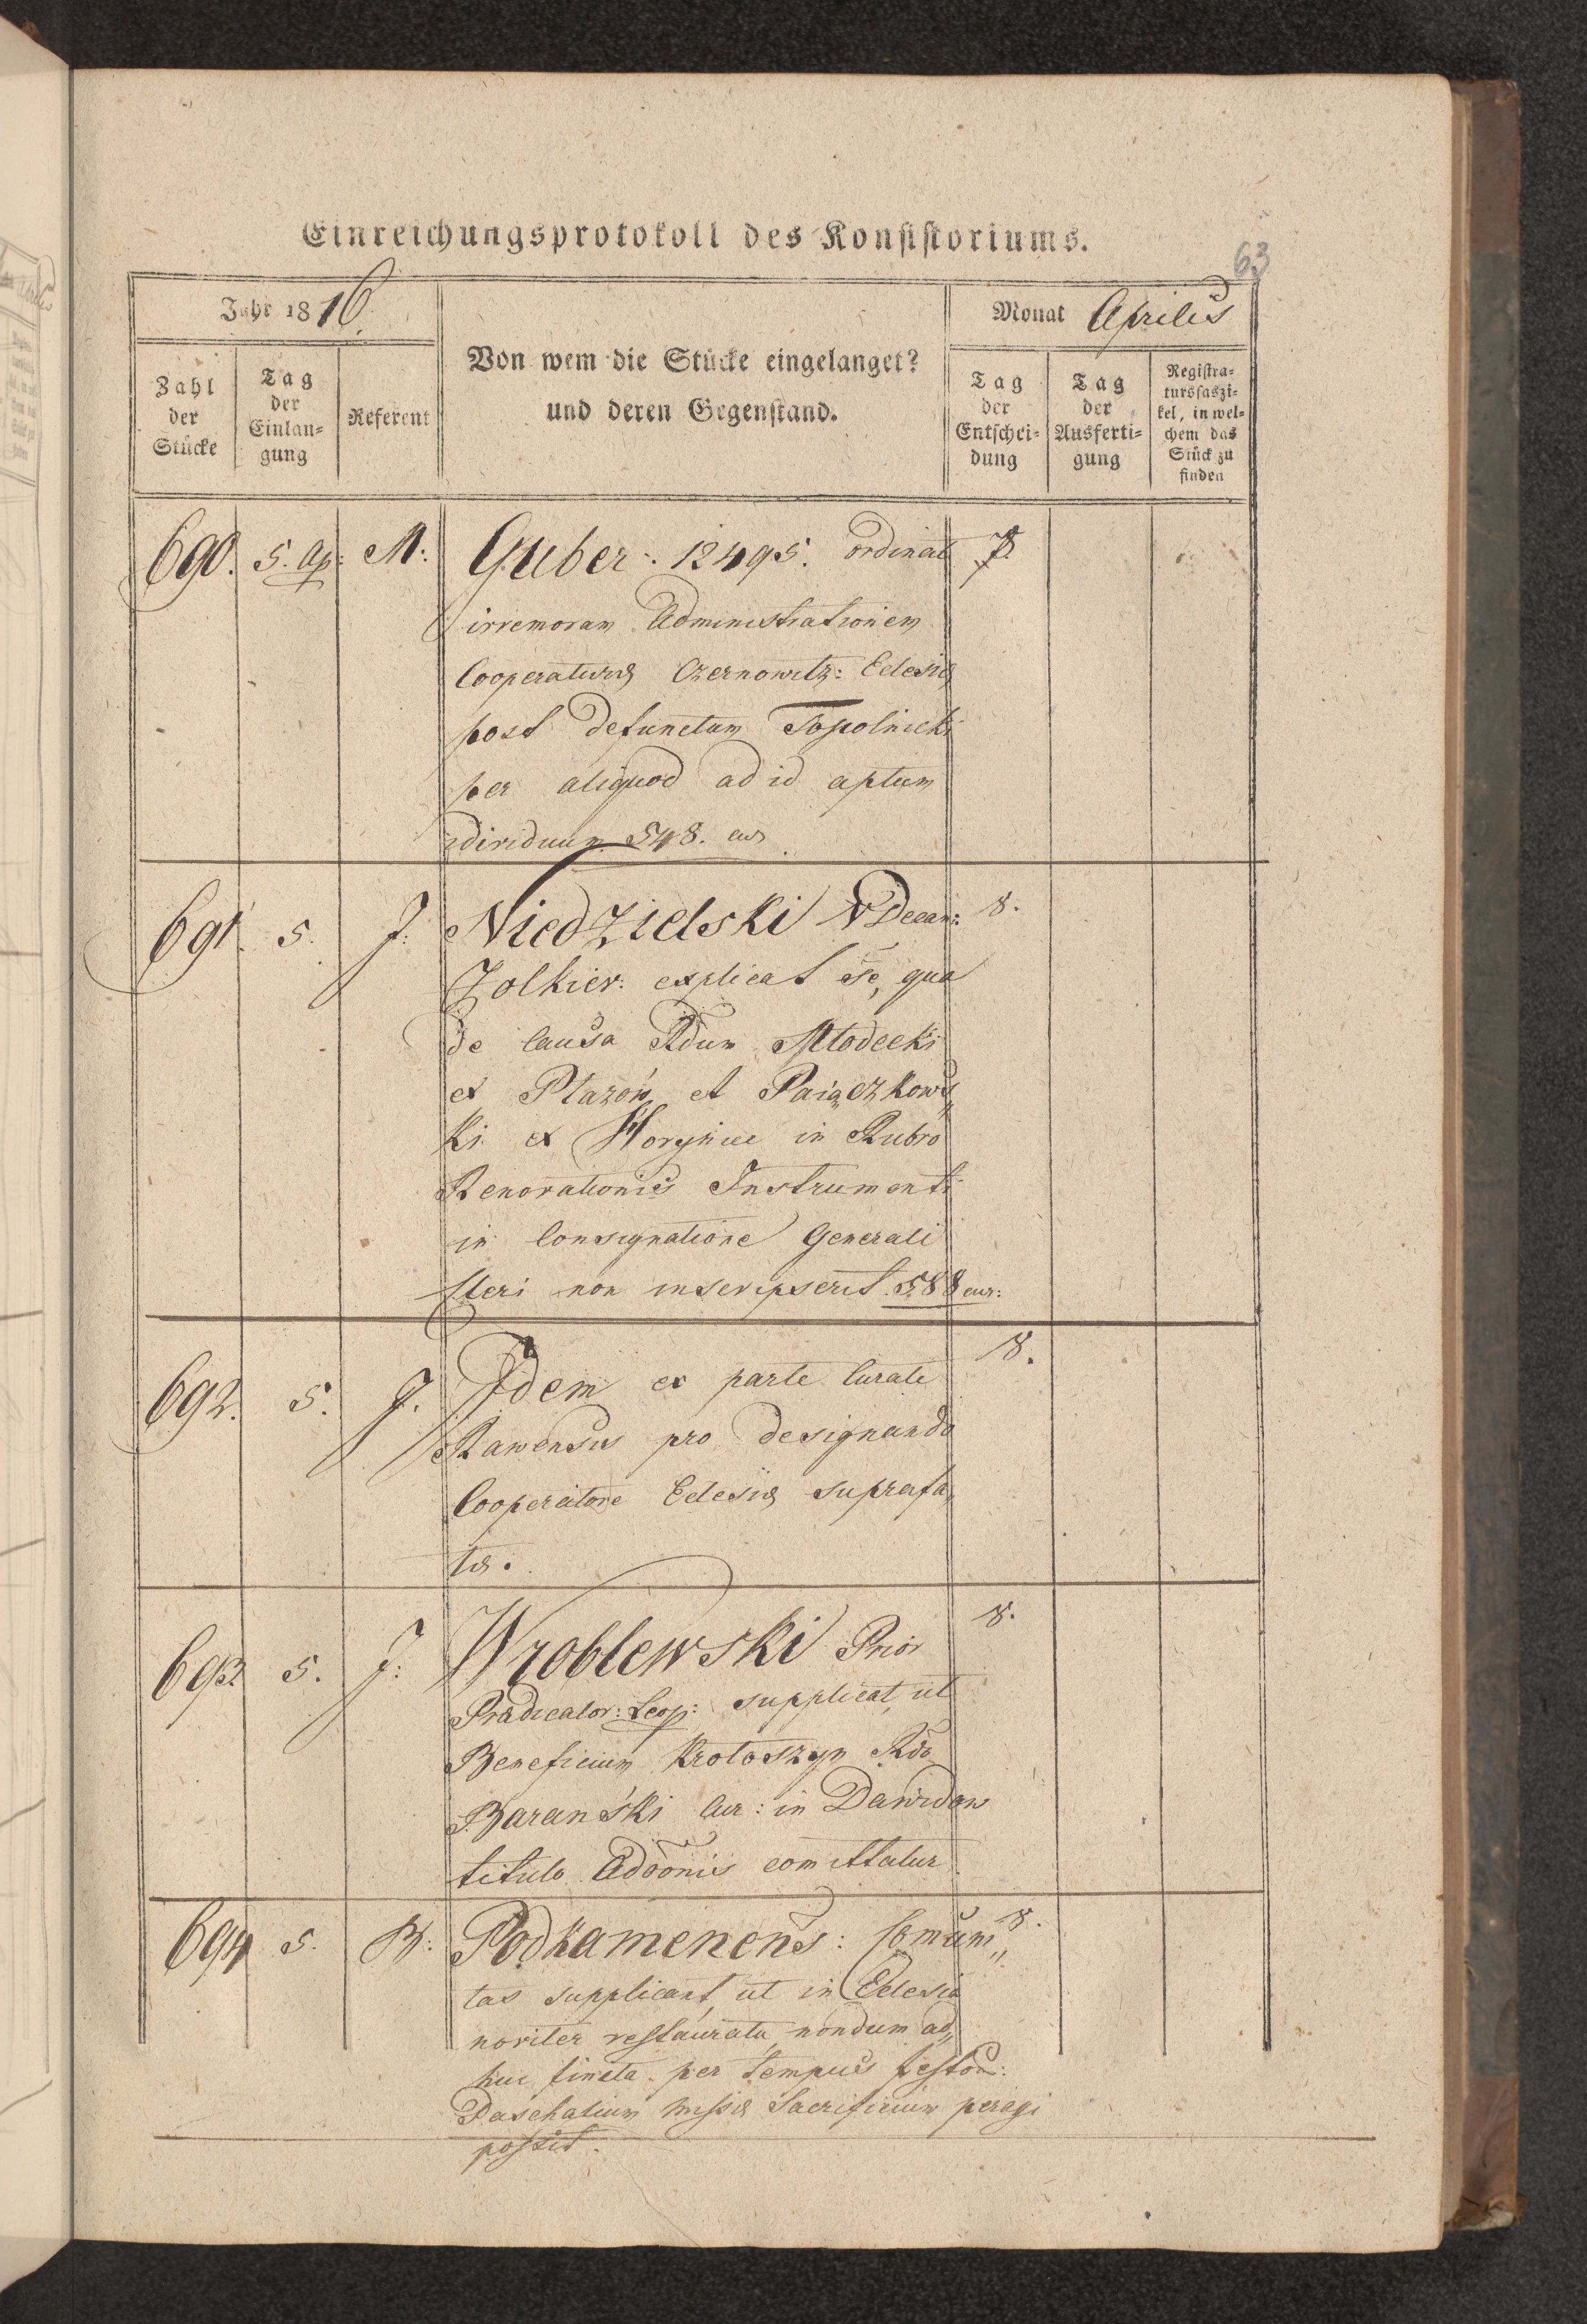 Einreichungsprotokoll des Konsistoriums.
63
Jahr 1816.
Monat Aprilis
Zahl der Stücke
Tag der Einlangung
Referent
Von wem die Stücke eingelanget?
und deren Gegenstand.
Tag der Entscheidung
Tag der Ausfertigung
Registratursfaszikel, in welchem das Stück zu finden
690. 5. Ap: M: Guber: 12495. ordinat
irremoram Administrationem
Cooperaturæ Czernowitz: Eclesiæ
post defunctum Topolnicki
per aliquod ad id aptum
idividuum 548. cur
691. 5. J: Niedzielski VDecan: 8.
Zolkiev: explicat se, qua
de causa Rdum Młodecki
ex Płazów et Paiączkows„
ki ex Horyniec in Rubro
Renovationis Instrumenti
in Consignatione Generali
Cleri non inscripserit. 588 cur:
692. 5. J. Idem ex parte Curati 8.
Rawensis pro designando
Cooperatore Eclesiæ suprafa„
tæ.
693 5. J: Wroblewski Prior 8.
Prædicator: Leop: supplicat, ut
Beneficium Krotoszyn Rdo
Barański Cur: in Dawidow
titulo Adōonis comittatur
694 5. B: Podkamenens: Comuni„ 8.
tas supplicant, ut in Eclesia
noviter restaurata, nondum ad„
huc finita per tempus festor:
Paschalium missæ Sacrificium peragi
possit.